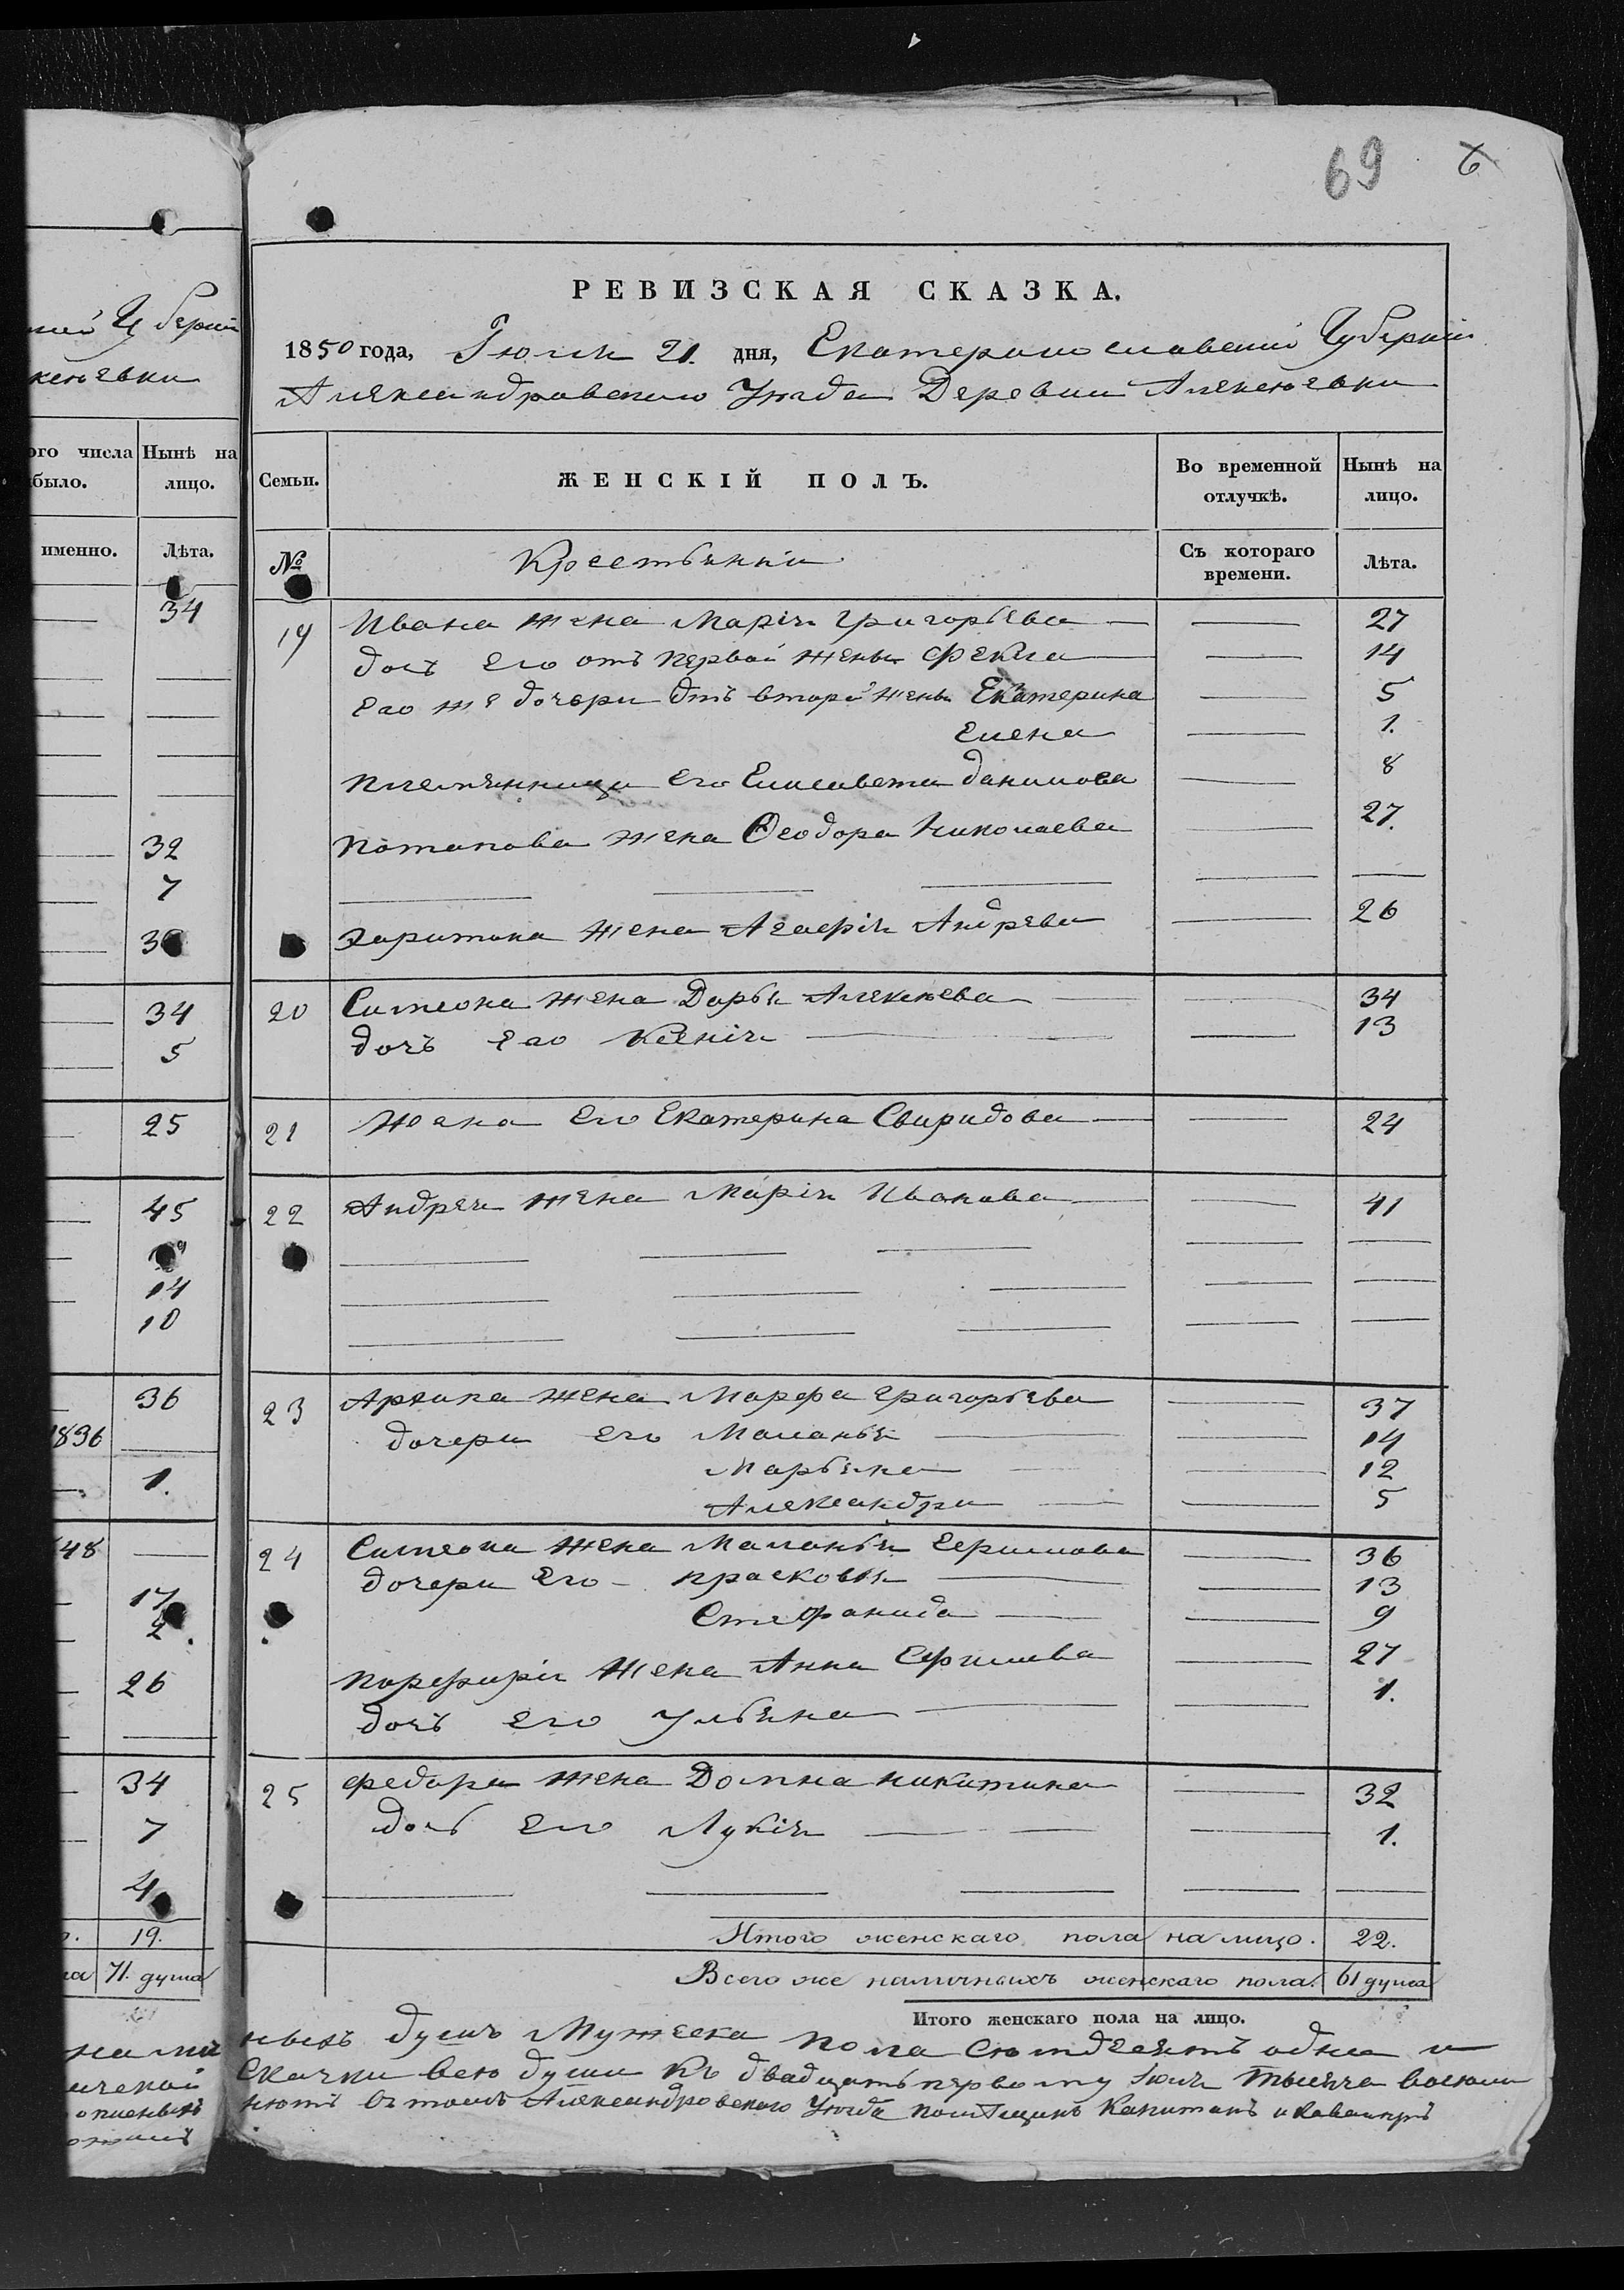 69 6
РЕВИЗСКАЯ СКАЗКА.
1850 года, Іюля 21. дня, Екатеринославской Губерніи
Александровскаго Уѣзда Деревни Алексѣевки
ого числа было. Нынѣ на лицо.
Семьи. ЖЕНСКІЙ ПОЛЪ. Во временной отлучкѣ. Нынѣ на лицо.
именно. Лѣта.
№ Крестьянки Съ котораго времени. Лѣта.
34
32
7
34
5
25
45
14
10
36
1836
1.
48
17
2
26
34
7
4
19.
71. душа
19 Ивана жена Марія Григорьева 27
дочь его отъ первой жены Фекла 14
его же дочери отъ второй жены Екатерина 5
Елена 1.
Племянница его Елисавета Данилова 8
Потапова жена Ѳеодора Николаева 27.
Харитона жена Агафія Андреева 26
20 Симеона жена Дарья Алексѣева 34
дочь его Ксенія 13
21 Жена его Екатерина Свиридова 24
22 Андрея жена Марія Иванова 41
23 Архипа жена Марфа Григорьева 37
дочери его Маланья 14
Марьяна 12
Александра 5
24 Симеона жена Маланья Ефимова 36
дочери его Прасковья 13
Стефанида 9
Порфирія жена Анна Ефимова 27
дочь его Ульяна 1.
25 Федора жена Домна Никитина 32
дочь его Лукія 1.
Итого женскаго пола на лицо. 22.
Всего же наличныхъ женскаго пола. 61 душа
Итого женскаго пола на лицо.
ныхъ душъ Мужеска пола семдесятъ одна и
Скачки всею души къ двадцать первому Іюля тысяча восемь
въ томъ Александровскаго Уѣзда помѣщикъ Капитанъ и Кавалеръ